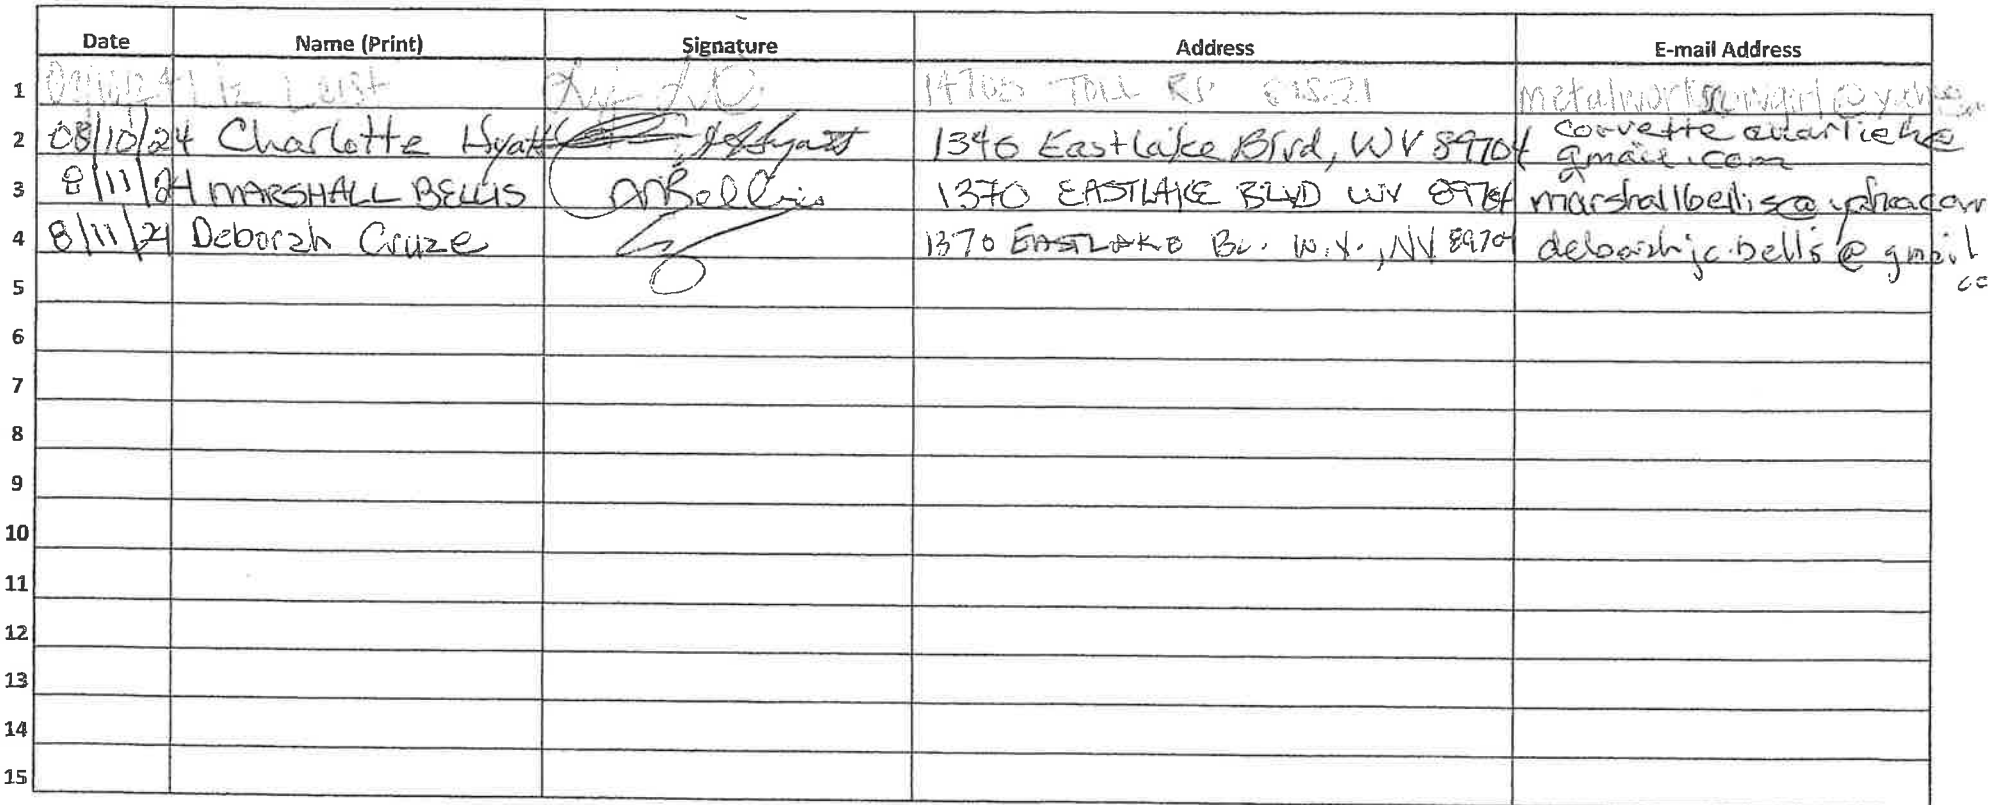 Date Name (Print) Signature Address E-mail Address
1 Liz List 14705 Toll Rd
2 08/10/24 Charlotte Hyatt 1346 Eastlake Blvd, WV 89704 corvette
gmail.com
3 8/11/24 MARSHALL BELLIS MBellis 1370 EASTLAKE BLVD WV 89704 marshallbellis@yahoo.com
4 8/11/24 Deborah Cruze 1370 EASTLAKE BL. W.V., NV 89704 deborahjc.bellis@gmail
5
6
7
8
9
10
11
12
13
14
15